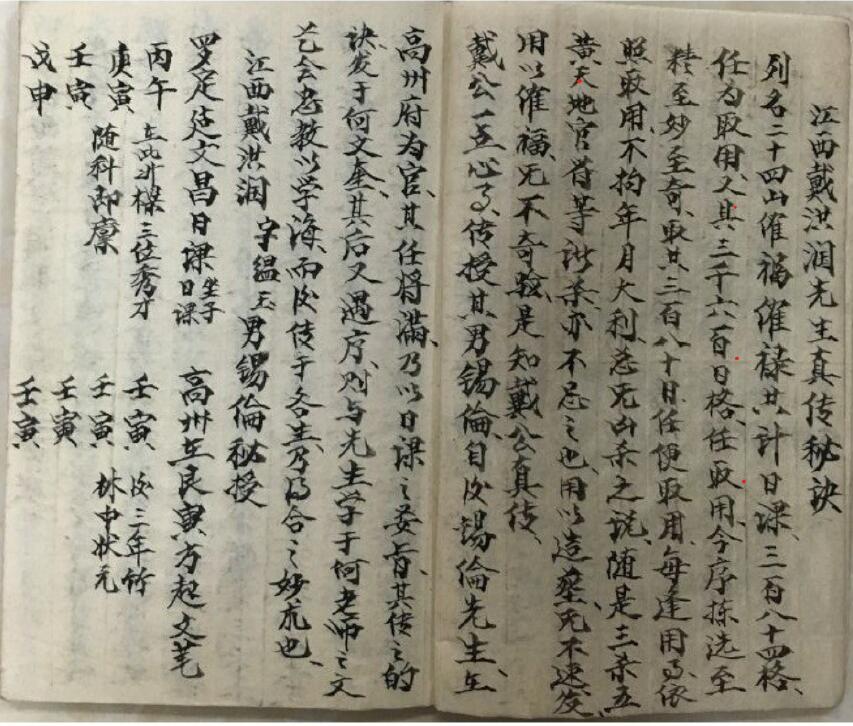 江西戴洪润先生真传秘诀
列名二十四山催福催禄共计日课三百八十四格、
任为取用又其三千六百日格、任取用、今序拣选至
精至妙至奇、取其三百八十日任便取用、每逢用事、依
照取用、不拘年月大利总无凶杀之说、随是三杀五
黄天地官符等诸杀、亦不忌之也、用以造葬、无不速发、
用以催福、无不奇验、是知戴公真传、
戴公一点心事、传授其男锡伦、自后锡伦先生、在
高州府为官、其任将满、乃以日课之妄旨、其传之的
诀发于何文奎、其后又遇序、则与先生学于何老师之文
艺会、患教以学海、而后传于各书、乃得合之妙、尤也、
江西戴洪润 字缊玉 男锡伦秘授
罗定廷文昌日课 坐子日课 高州在艮寅方起文笔
丙午 在此升檺三位秀才 壬寅 后三年竹
庚寅 随科即廪 壬寅 林中状元
壬寅 壬寅
戊申 壬寅